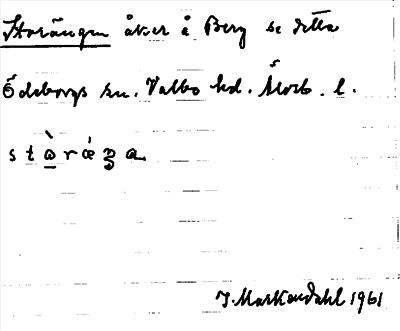 Storängen åker å Berg se detta
Ödeborgs sn. Valbo hd. Älvsb. l.
J. Markendahl 1961